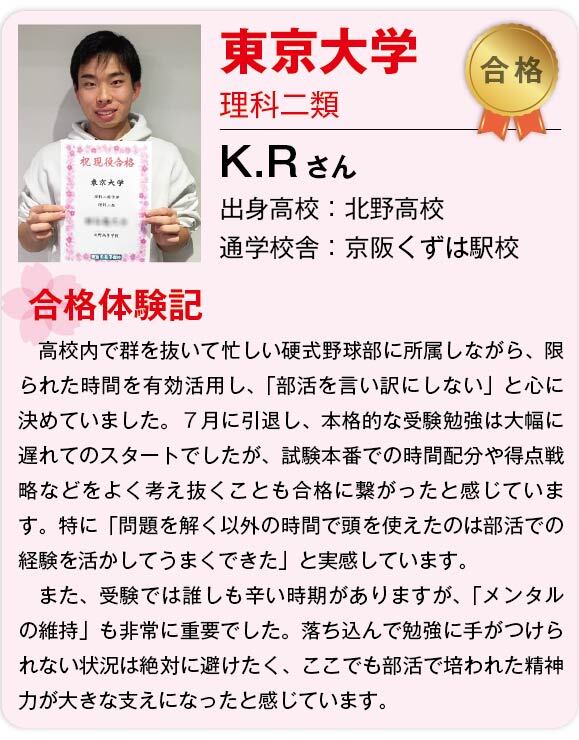 東京大学
合格
理科二類
K.Rさん
出身高校：北野高校
通学校舎：京阪くずは駅校
祝現役合格
東京大学
合格体験記
　高校内で群を抜いて忙しい硬式野球部に所属しながら、限
られた時間を有効活用し、「部活を言い訳にしない」と心に
決めていました。７月に引退し、本格的な受験勉強は大幅に
遅れてのスタートでしたが、試験本番での時間配分や得点戦
略などをよく考え抜くことも合格に繋がったと感じていま
す。特に「問題を解く以外の時間で頭を使えたのは部活での
経験を活かしてうまくできた」と実感しています。
　また、受験では誰しも辛い時期がありますが、「メンタル
の維持」も非常に重要でした。落ち込んで勉強に手がつけら
れない状況は絶対に避けたく、ここでも部活で培われた精神
力が大きな支えになったと感じています。